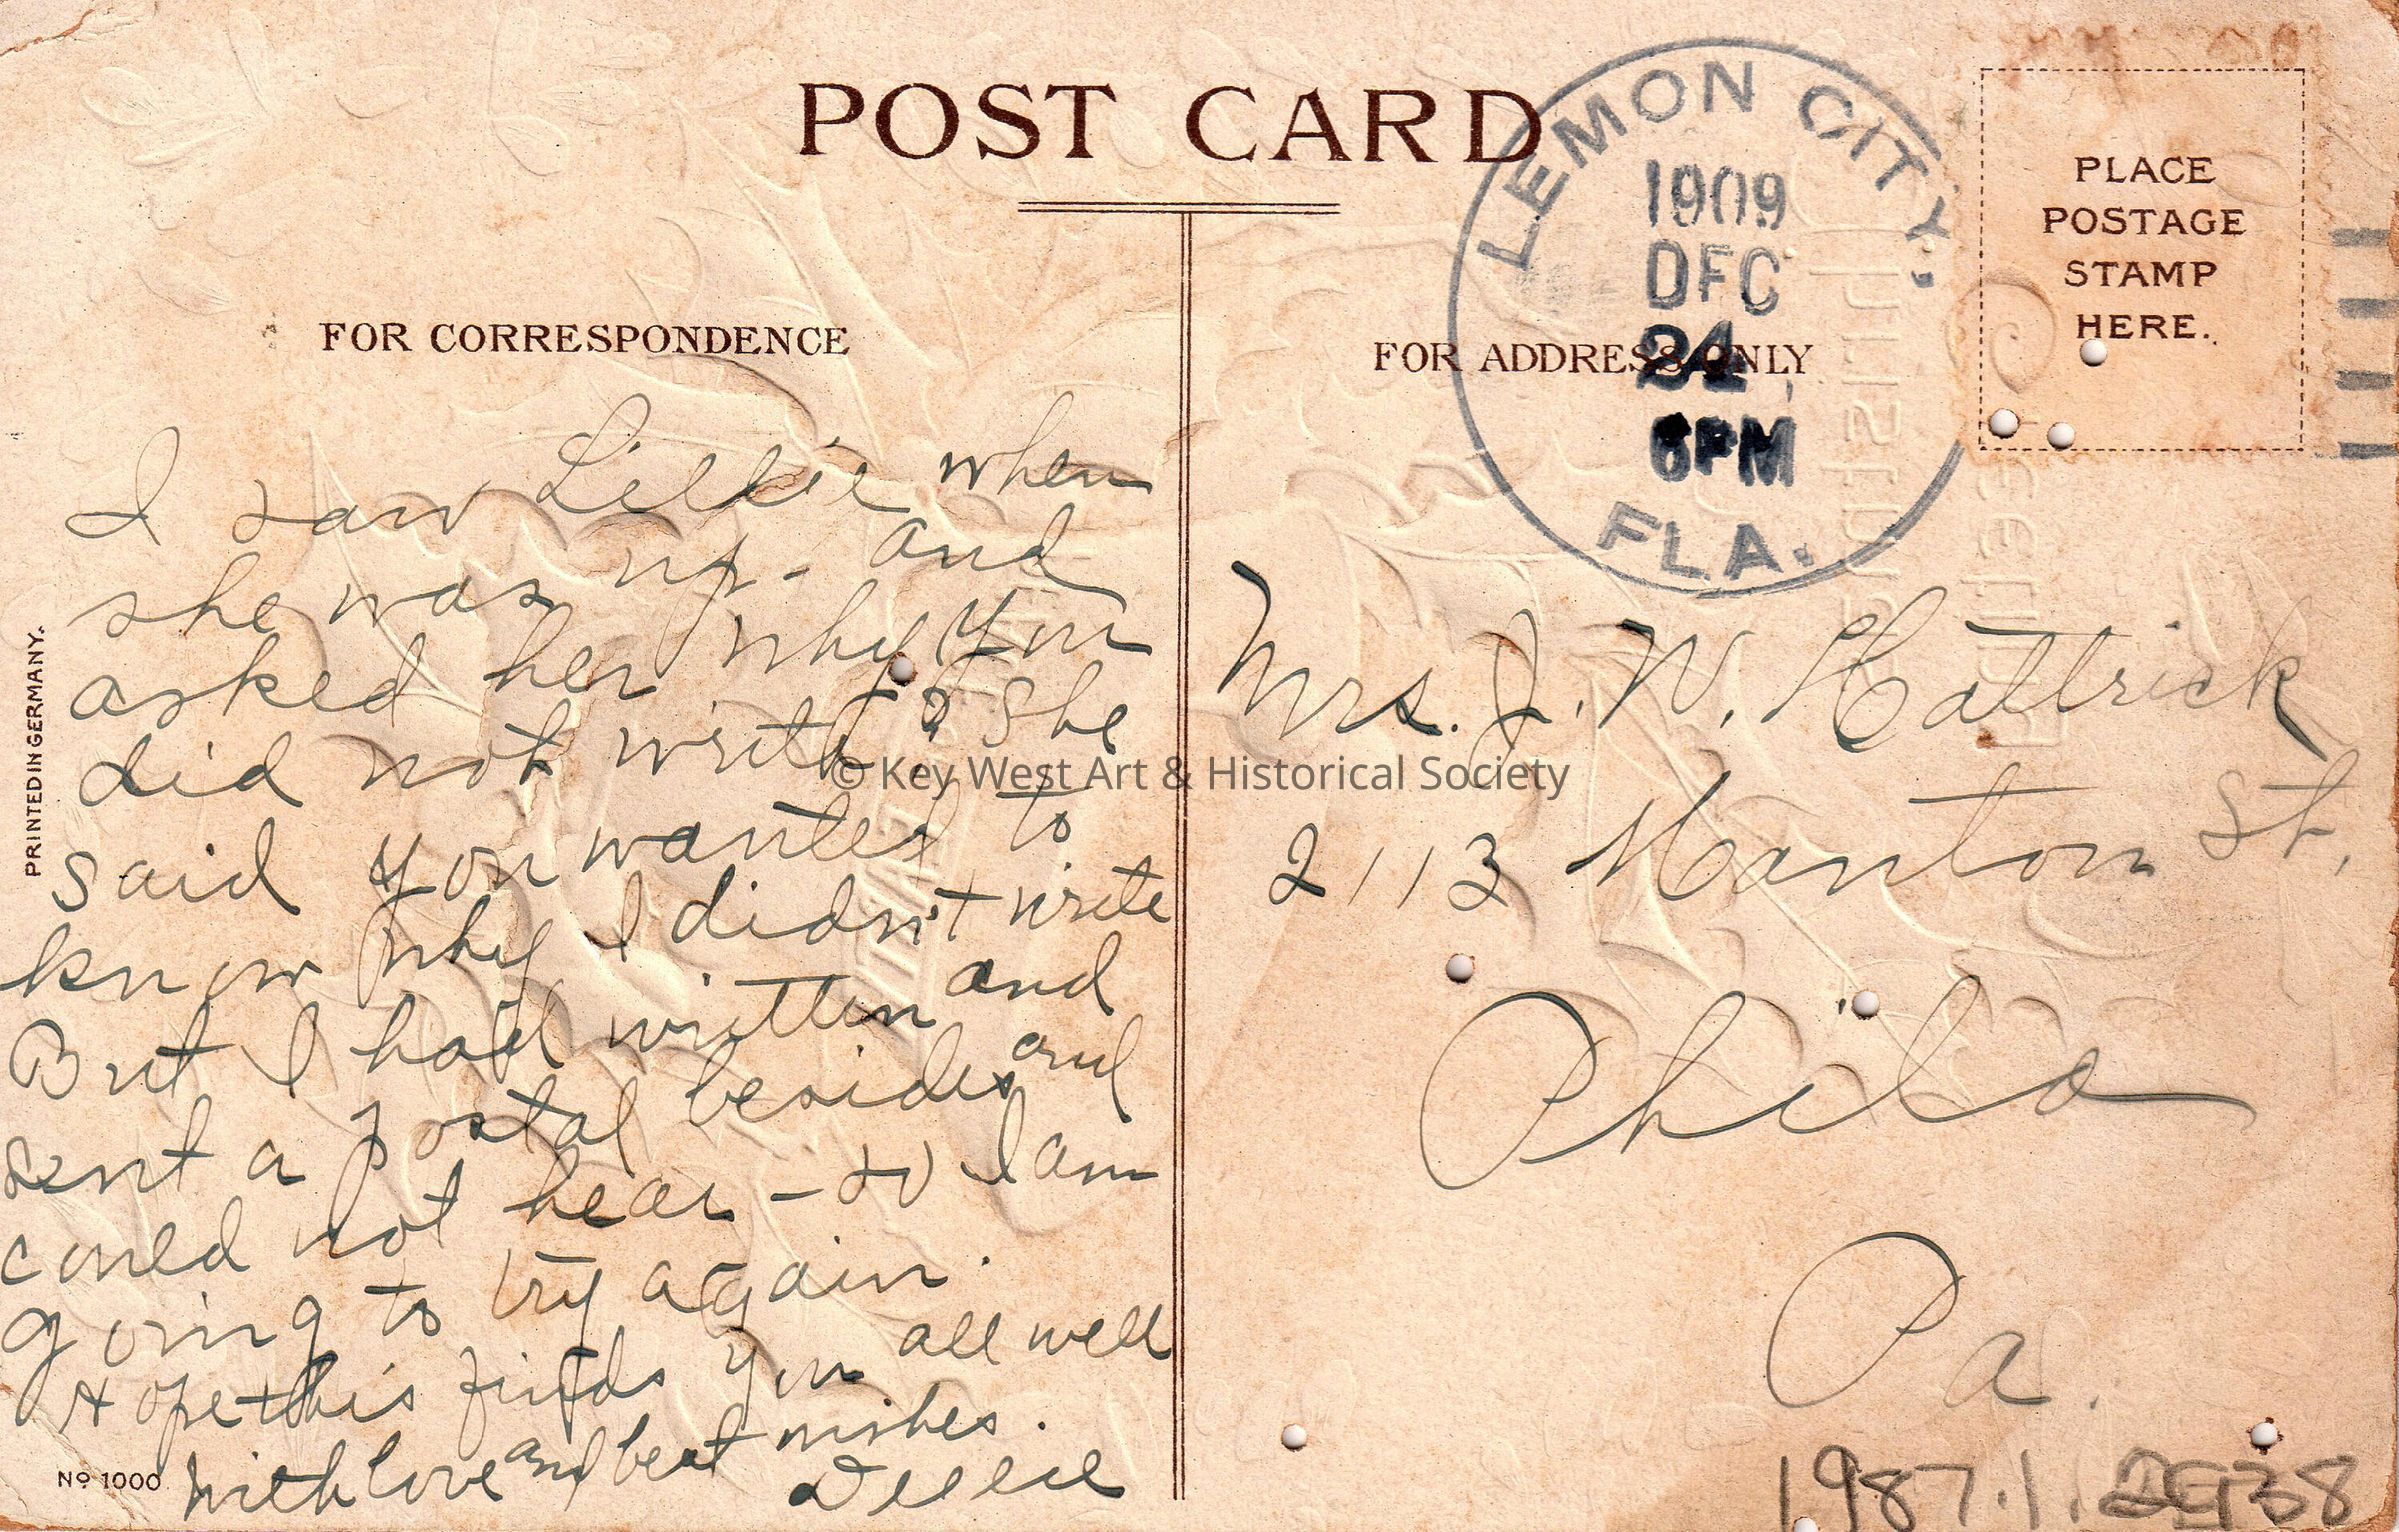 POST CARD
LEMON CITY,
1909
DEC
24
6PM
FLA.
PLACE
POSTAGE
STAMP
HERE.
FOR CORRESPONDENCE
FOR ADDRESS ONLY
I saw Lillie when
she was up - and
asked her why you
did not write? She
said you wanted to
know why I didn't write
But I had written and
sent a postal besides and
could not hear - so I am
going to try again.
Hope this finds you all well
with love and best wishes.
Dellie
Mrs. J. W. Hattrick
2113 Manton St,
Phila
Pa.
PRINTED IN GERMANY.
No 1000
© Key West Art & Historical Society